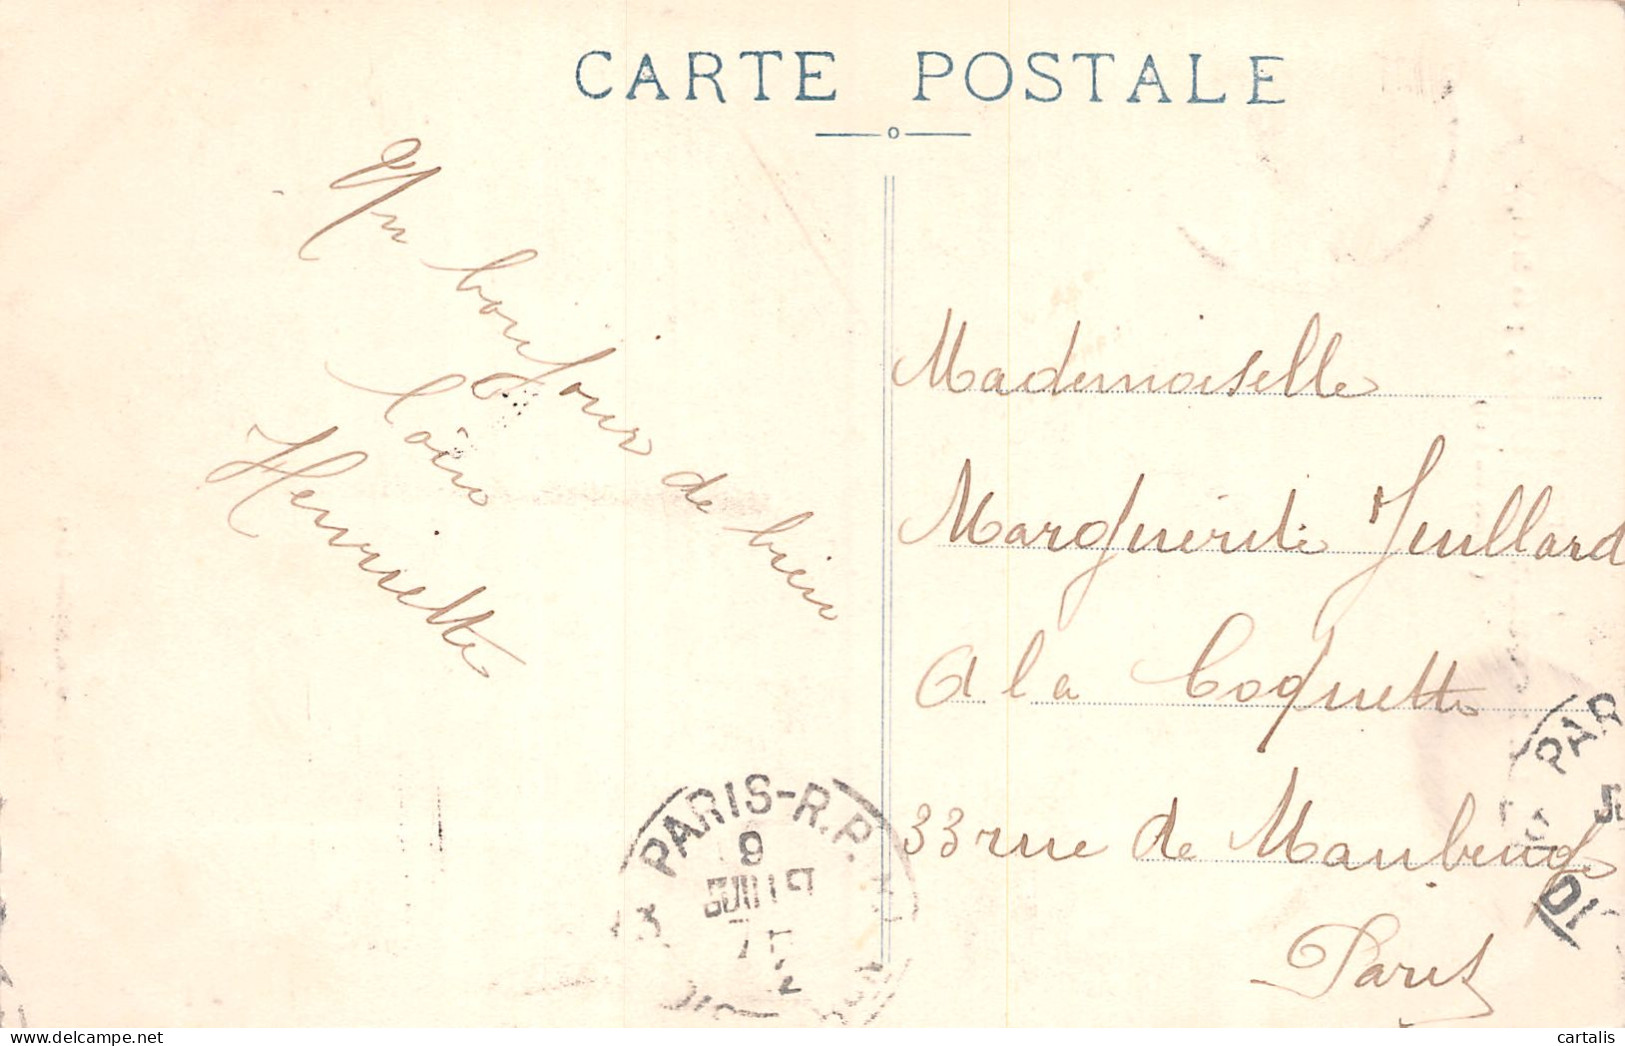 CARTE POSTALE
Un bonjour de bien
loin
Henriette
Mademoiselle
Marguerite Juillard
A la Coquette
33 rue de Maubeuge
Paris
PARIS-R.P.
9
JUILLET
PAR
cartalis